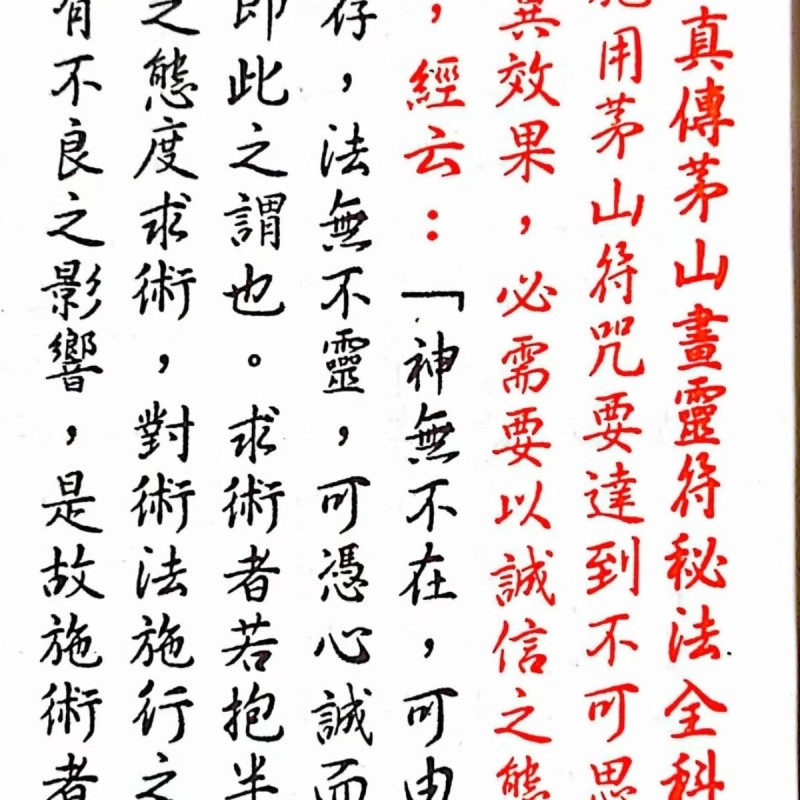 真傳茅山畫靈符秘法全科
施用茅山符咒要達到不可思
異效果，必需要以誠信之態
，經云：「神無不在，可由
存，法無不靈，可憑心誠而
即此之謂也。求術者若抱半
之態度求術，對術法施行之
有不良之影響，是故施術者